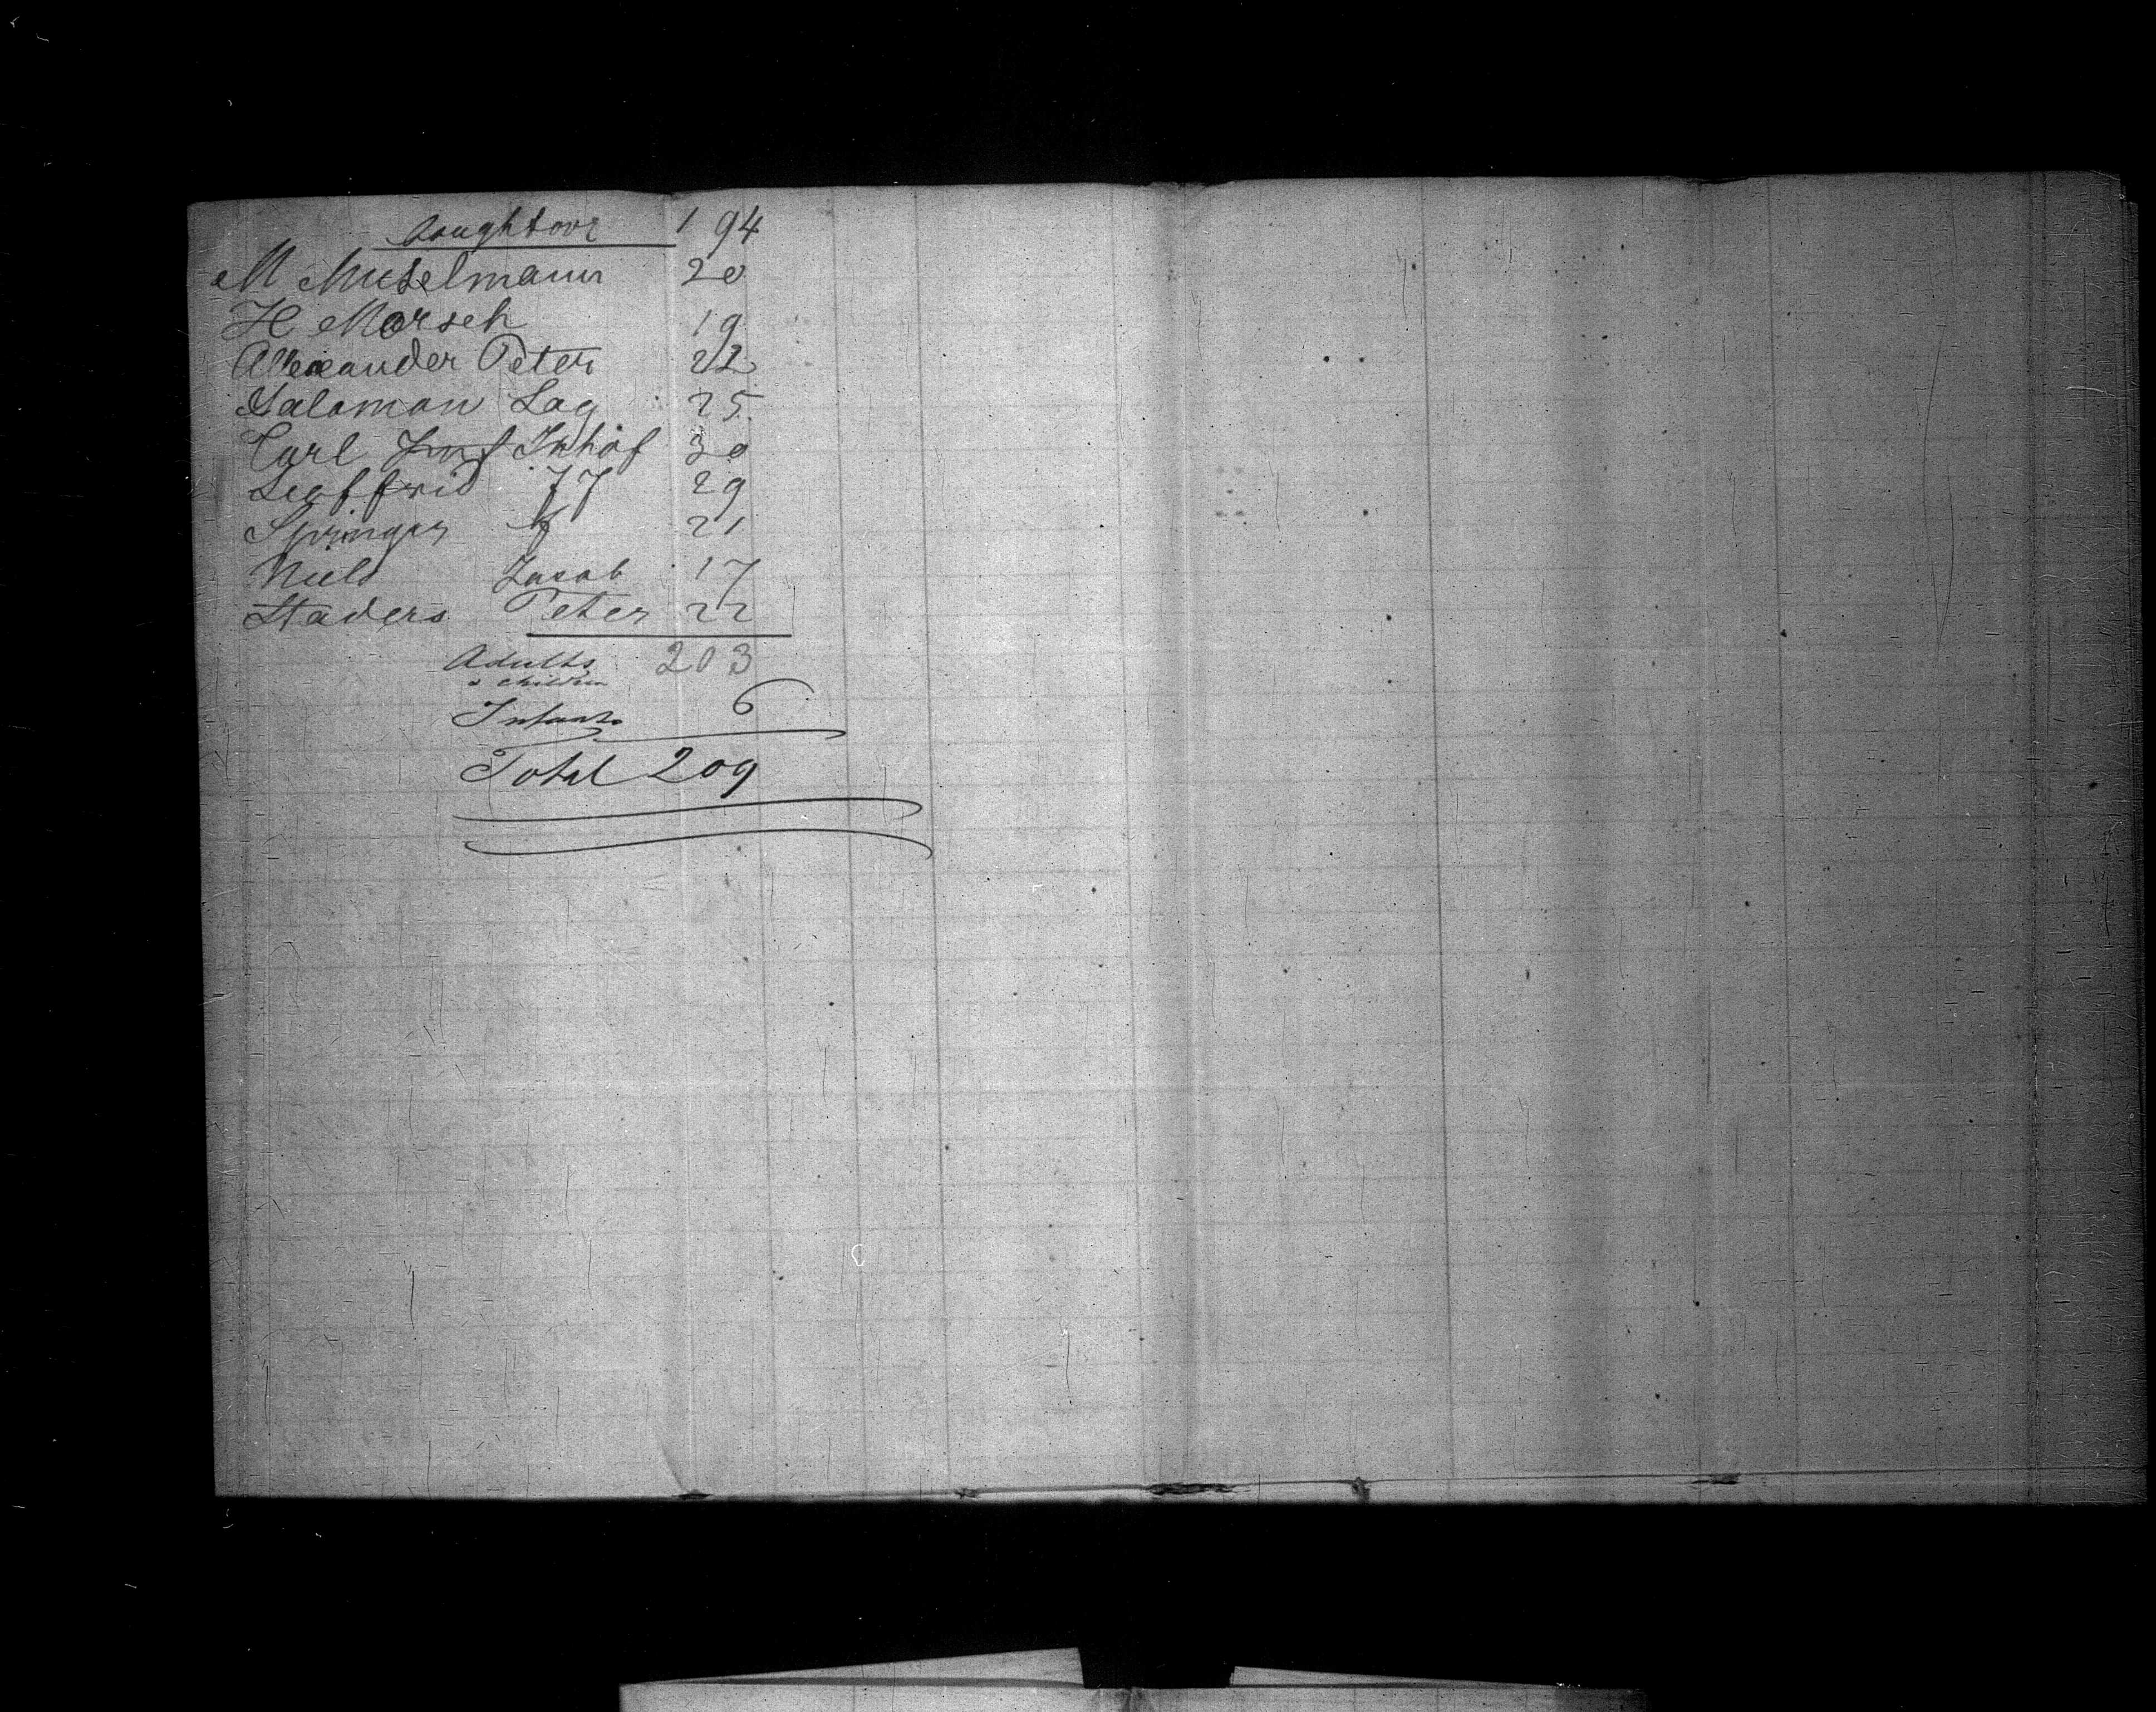 Baughtovr 194
M Muselmann 20
H Morseh 19
Alexander Peter 22
Salaman Lag 25
Carl Imf Inhof 30
Seoffrid JJ 29
Springer f 21
Nield Jacob 17
Staders Peter 22
Adults 203
& children
Infants 6
Total 209